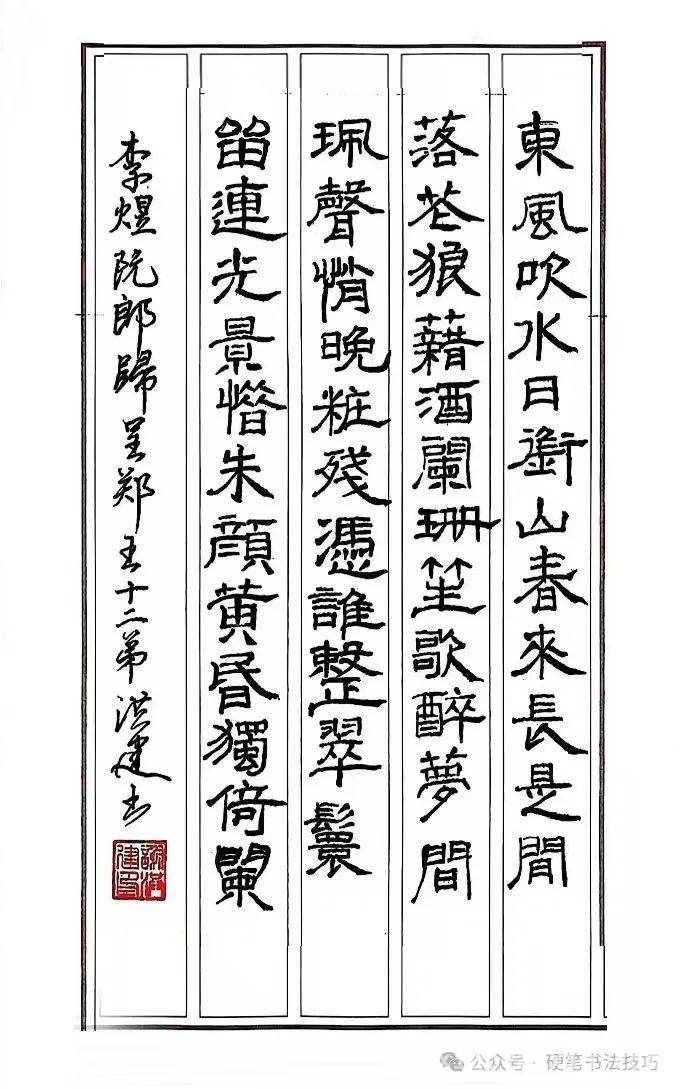 東風吹水日銜山春來長是閒
落花狼藉酒闌珊笙歌醉夢間
珮聲悄晚粧殘憑誰整翠鬟
留連光景惜朱顔黄昏獨倚闌
李煜阮郎歸呈郑王十二弟洪建书
公众号·硬笔书法技巧